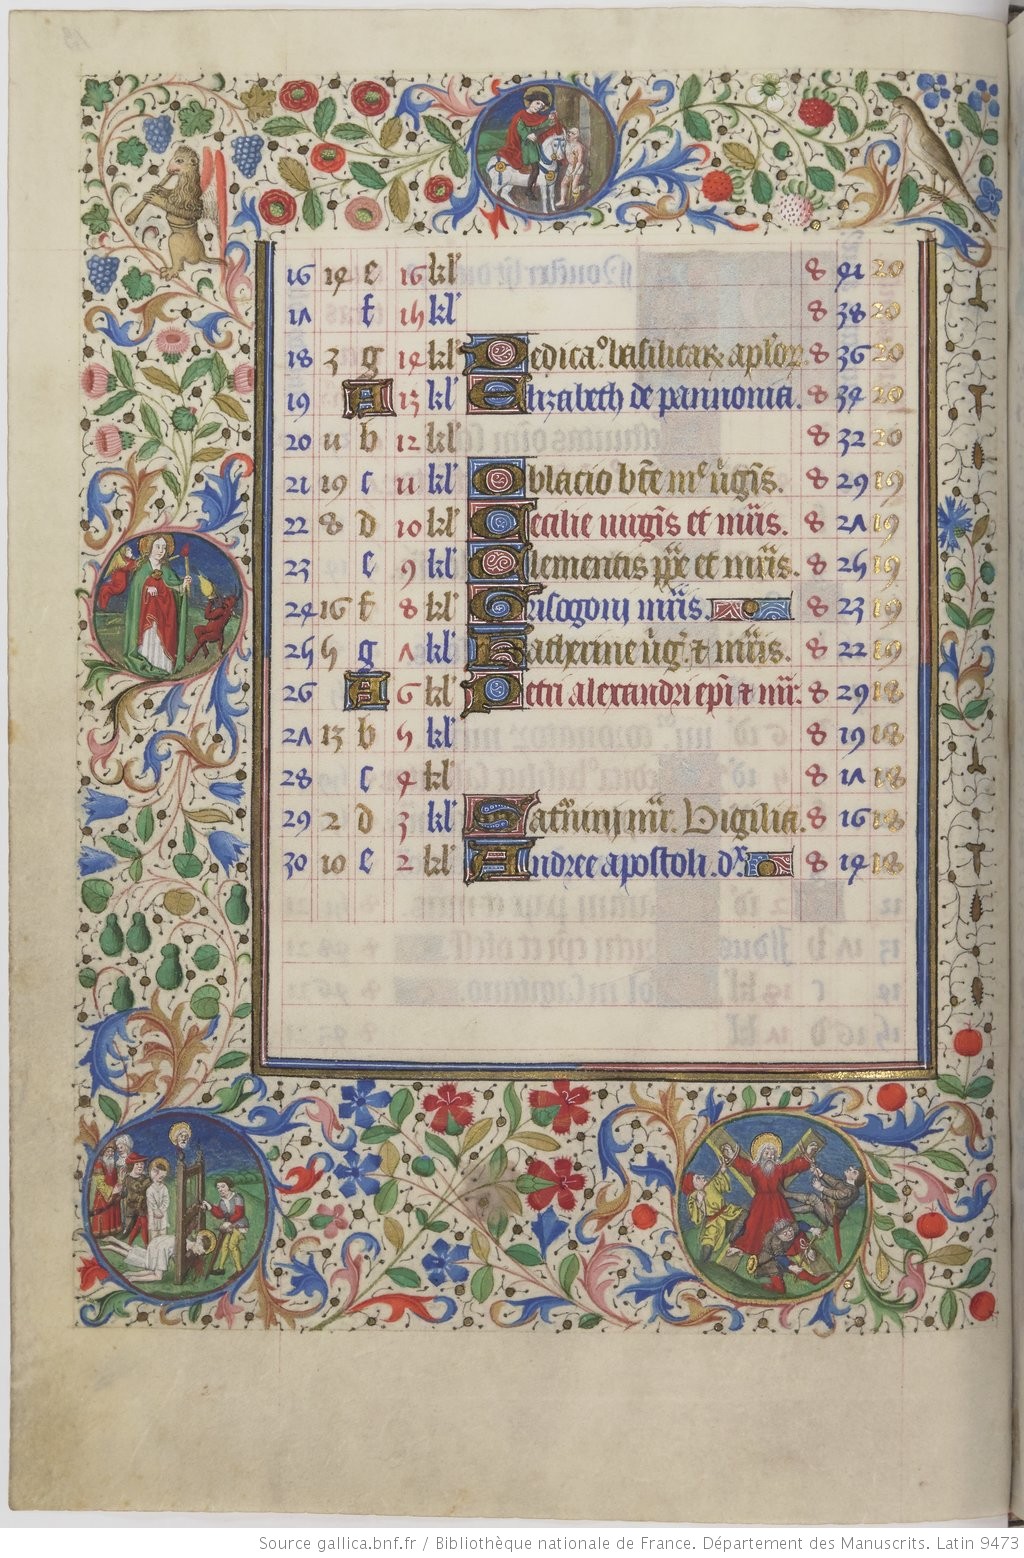 16 14 e 16 kl' 8 41 20
17 f 15 kl' 8 38 20
18 3 g 14 kl' Dedica° basilicaꝝ apl'oꝝ 8 36 20
19 A 13 kl' Elizabeth de pannonia. 8 34 20
20 11 b 12 kl' 8 32 20
21 19 c 11 kl' Oblacio bt̄e me v̄gīs. 8 29 19
22 8 d 10 kl' Cecilie virgīs et mr̄is. 8 27 19
23 e 9 kl' Clementis pp̄e et mr̄is. 8 25 19
24 16 f 8 kl' Grisogonj mr̄is. 8 23 19
25 5 g 7 kl' Katherine v̄g. et mr̄is. 8 22 19
26 A 6 kl' Petri alexandri ep̄i et mr̄. 8 29 18
27 13 b 5 kl' 8 19 18
28 c 4 kl' 8 17 18
29 2 d 3 kl' Sat'ninj mr̄. Vigilia. 8 16 18
30 10 e 2 kl' Andree apostoli. dx 8 14 18
Source gallica.bnf.fr / Bibliothèque nationale de France. Département des Manuscrits. Latin 9473